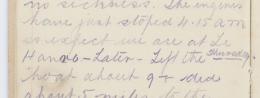 no sickness. The engines
have just stoped 4.15 a.m
so expect we are at Le
Havre - Later - Left the Thursday
boat about 9 + rode
about 5 miles to the